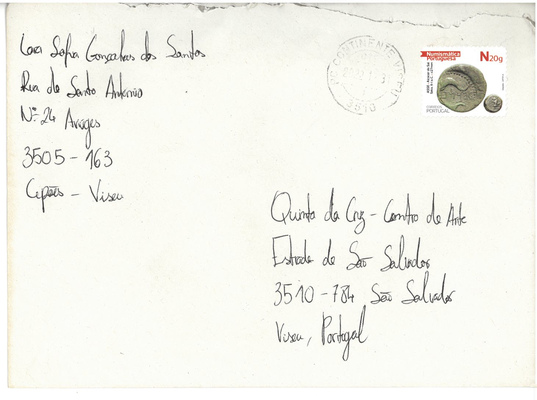 Sofia Gonçalves dos Santos
Rua de Santo António
Nº 24
3505 - 163
Cepões - Viseu
CONTINENTE VISEU
3510
Numismática
Portuguesa
N20g
PORTUGAL
Quinta da Cruz - Centro de Arte
Estrada de São Salvador
3510 - 784 São Salvador
Viseu, Portugal